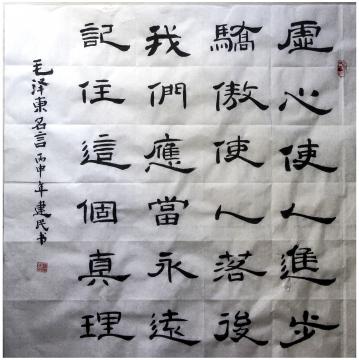 虛心使人進步
驕傲使人落後
我們應當永遠
記住這個真理
毛泽東名言丙申年建民书